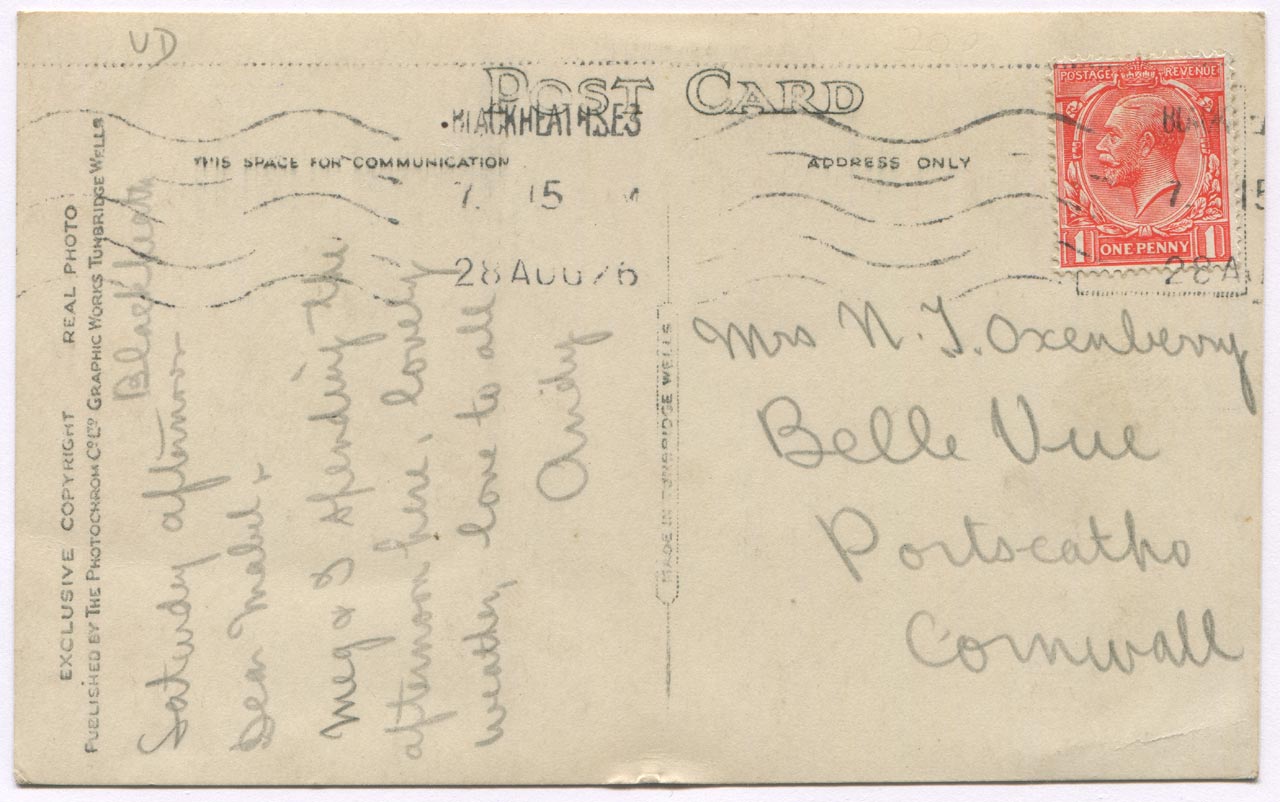 UD
POST CARD
BLACKHEATH S.E.3
7. 15
28 AUG 26
THIS SPACE FOR COMMUNICATION
ADDRESS ONLY
POSTAGE REVENUE
1 ONE PENNY 1
7 15
28 A
EXCLUSIVE COPYRIGHT REAL PHOTO
PUBLISHED BY THE PHOTOCHROM CO. LTD. GRAPHIC WORKS TUNBRIDGE WELLS
Blackheath
Saturday afternoon
Dear Mabel,
Meg & I spending the
afternoon here, lovely
weather, love to all
Andy
MADE IN TUNBRIDGE WELLS
Mrs N. J. Oxenberry
Belle Vue
Portscatho
Cornwall